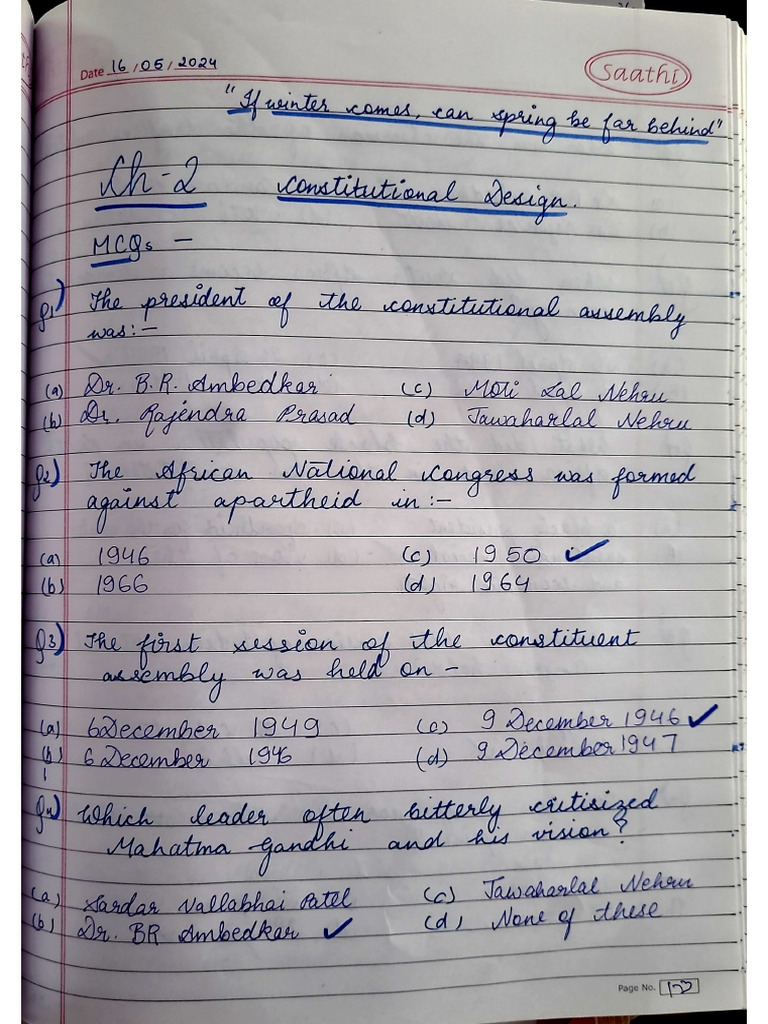 Date 16/05/2024
Saathi
"If winter comes, can spring be far behind"
Ch-2 Constitutional Design.
MCQs -
Q1) The president of the constitutional assembly
was:-
(a) Dr. B.R. Ambedkar (c) Moti Lal Nehru
(b) Dr. Rajendra Prasad (d) Jawaharlal Nehru
Q2) The African National Congress was formed
against apartheid in:-
(a) 1946 (c) 1950 ✓
(b) 1966 (d) 1964
Q3) The first session of the constituent
assembly was held on -
(a) 6 December 1949 (c) 9 December 1946 ✓
(b) 6 December 1946 (d) 9 December 1947
Q4) Which leader often bitterly critisized
Mahatma Gandhi and his vision?
(a) Sardar Vallabhai Patel (c) Jawaharlal Nehru
(b) Dr. BR Ambedkar ✓ (d) None of these
Page No.